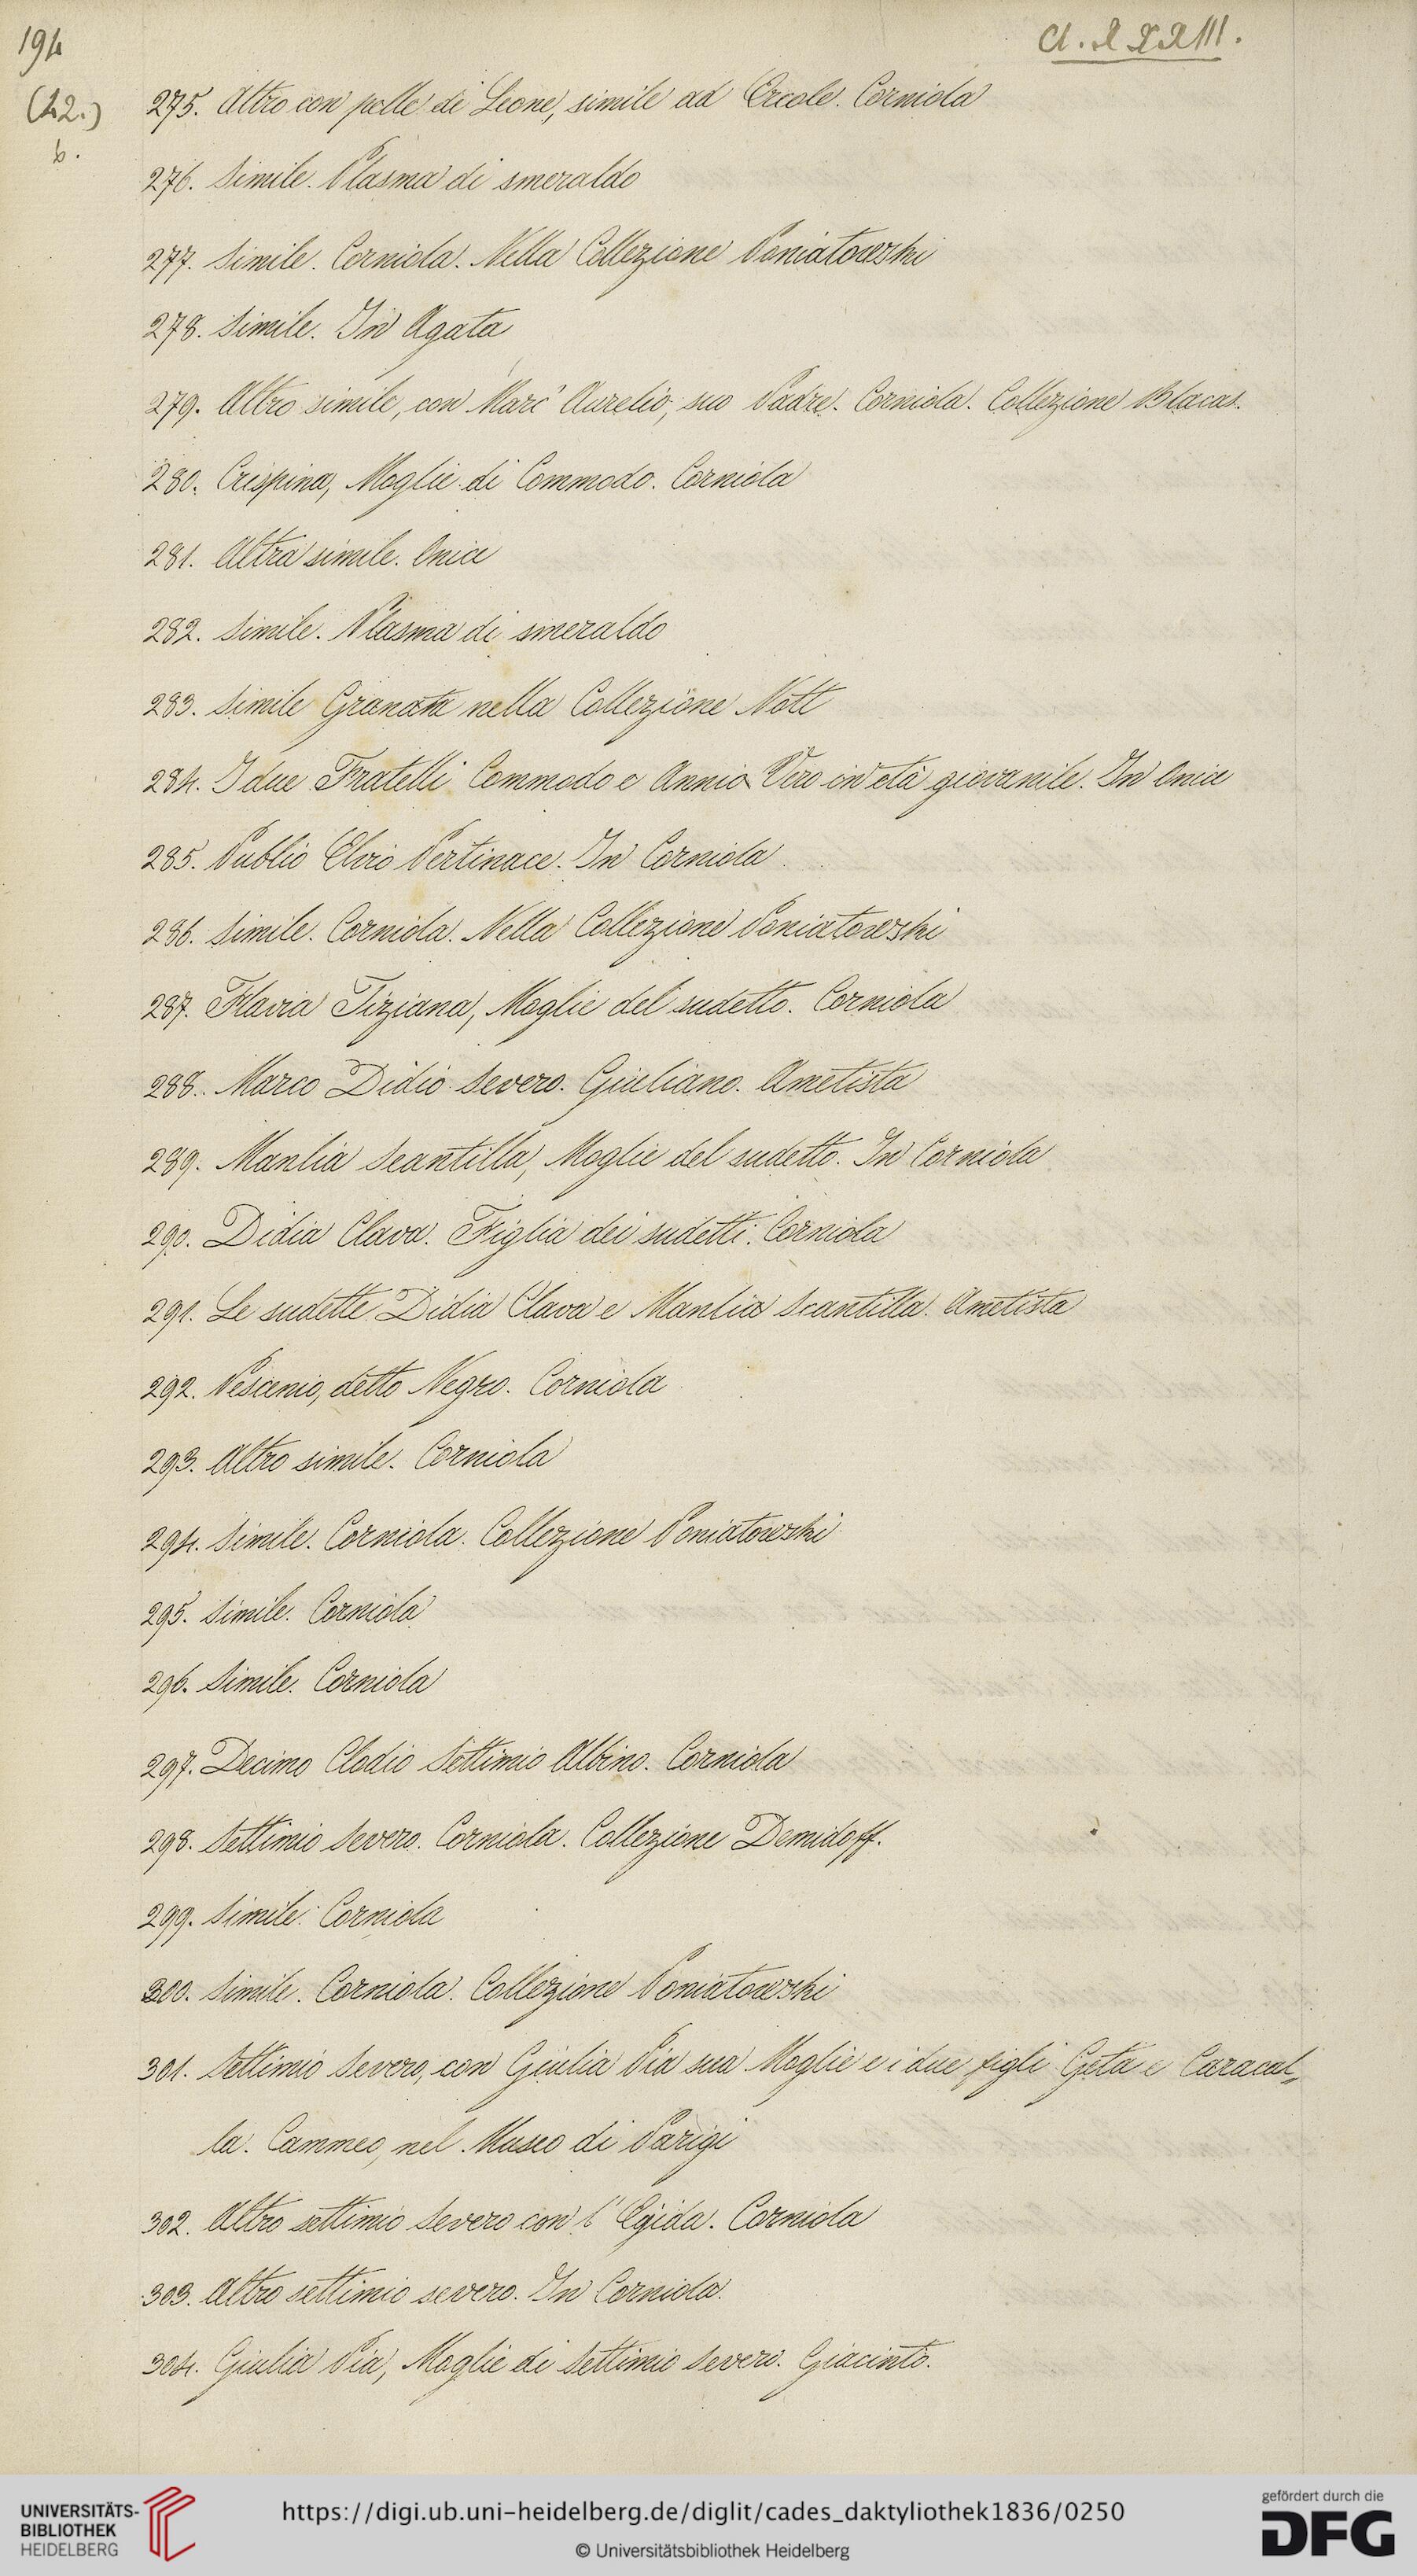 194
Cl. XXXIII.
(42.)
b.
275. Altro con pelle di Leone, simile ad Ercole. Corniola
276. Simile. Plasma di smeraldo
277. Simile. Corniola. Nella Collezione Poniatowski
278. Simile. In Agata
279. Altro simile, con Marc' Aurelio, suo Padre. Corniola. Collezione Blacas.
280. Crispina, Moglie di Commodo. Corniola
281. Altra simile. Onice
282. Simile. Plasma di smeraldo
283. Simile Granata nella Collezione Nott
284. I due Fratelli Commodo e Annio Vero in età giovanile. In Onice
285. Publio Elvio Pertinace. In Corniola
286. Simile. Corniola. Nella Collezione Poniatowski
287. Flavia Tiziana, Moglie del sudetto. Corniola
288. Marco Didio Severo. Giuliano. Ametista
289. Manlia Scantilla, Moglie del sudetto. In Corniola
290. Didia Clava. Figlia dei sudetti. Corniola
291. Le sudette Didia Clava e Manlia Scantilla. Ametista
292. Pescenio, detto Negro. Corniola
293. Altro simile. Corniola
294. Simile. Corniola. Collezione Poniatowski
295. Simile. Corniola
296. Simile. Corniola
297. Decimo Clodio Settimio Albino. Corniola
298. Settimio Severo. Corniola. Collezione Demidoff.
299. Simile. Corniola
300. Simile. Corniola. Collezione Poniatowski
301. Settimio Severo, con Giulia Pia sua Moglie e i due figli Geta e Caracal„
la. Cammeo, nel Museo di Parigi
302. Altro settimio Severo con l'Egida. Corniola
303. Altro settimio severo. In Corniola.
304. Giulia Pia, Moglie di Settimio Severo. Giacinto.
UNIVERSITÄTS-
BIBLIOTHEK
HEIDELBERG
https://digi.ub.uni-heidelberg.de/diglit/cades_daktyliothek1836/0250
© Universitätsbibliothek Heidelberg
gefördert durch die
DFG